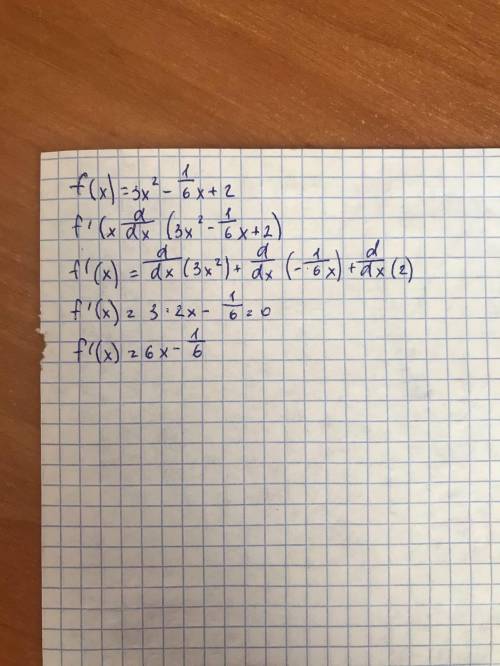 f(x) = 3x² - 1/6 x + 2
f'(x d/dx (3x² - 1/6 x + 2)
f'(x) = d/dx (3x²) + d/dx (- 1/6 x) + d/dx (2)
f'(x) = 3 · 2x - 1/6 = 0
f'(x) = 6x - 1/6